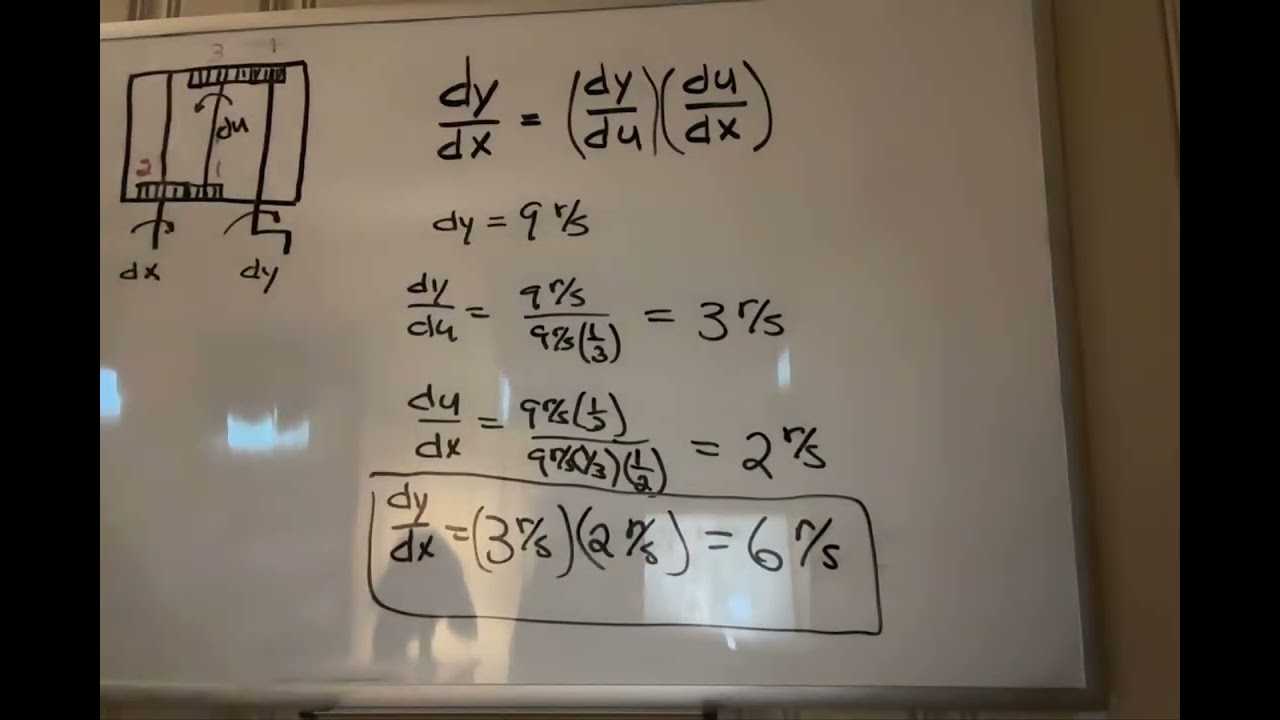 3 1
du
2 1
dx dy
dy/dx = (dy/du)(du/dx)
dy = 9 r/s
dy/du = 9 r/s / 9 r/s (1/3) = 3 r/s
du/dx = 9 r/s (1/3) / 9 r/s (1/3)(1/2) = 2 r/s
dy/dx = (3 r/s)(2 r/s) = 6 r/s